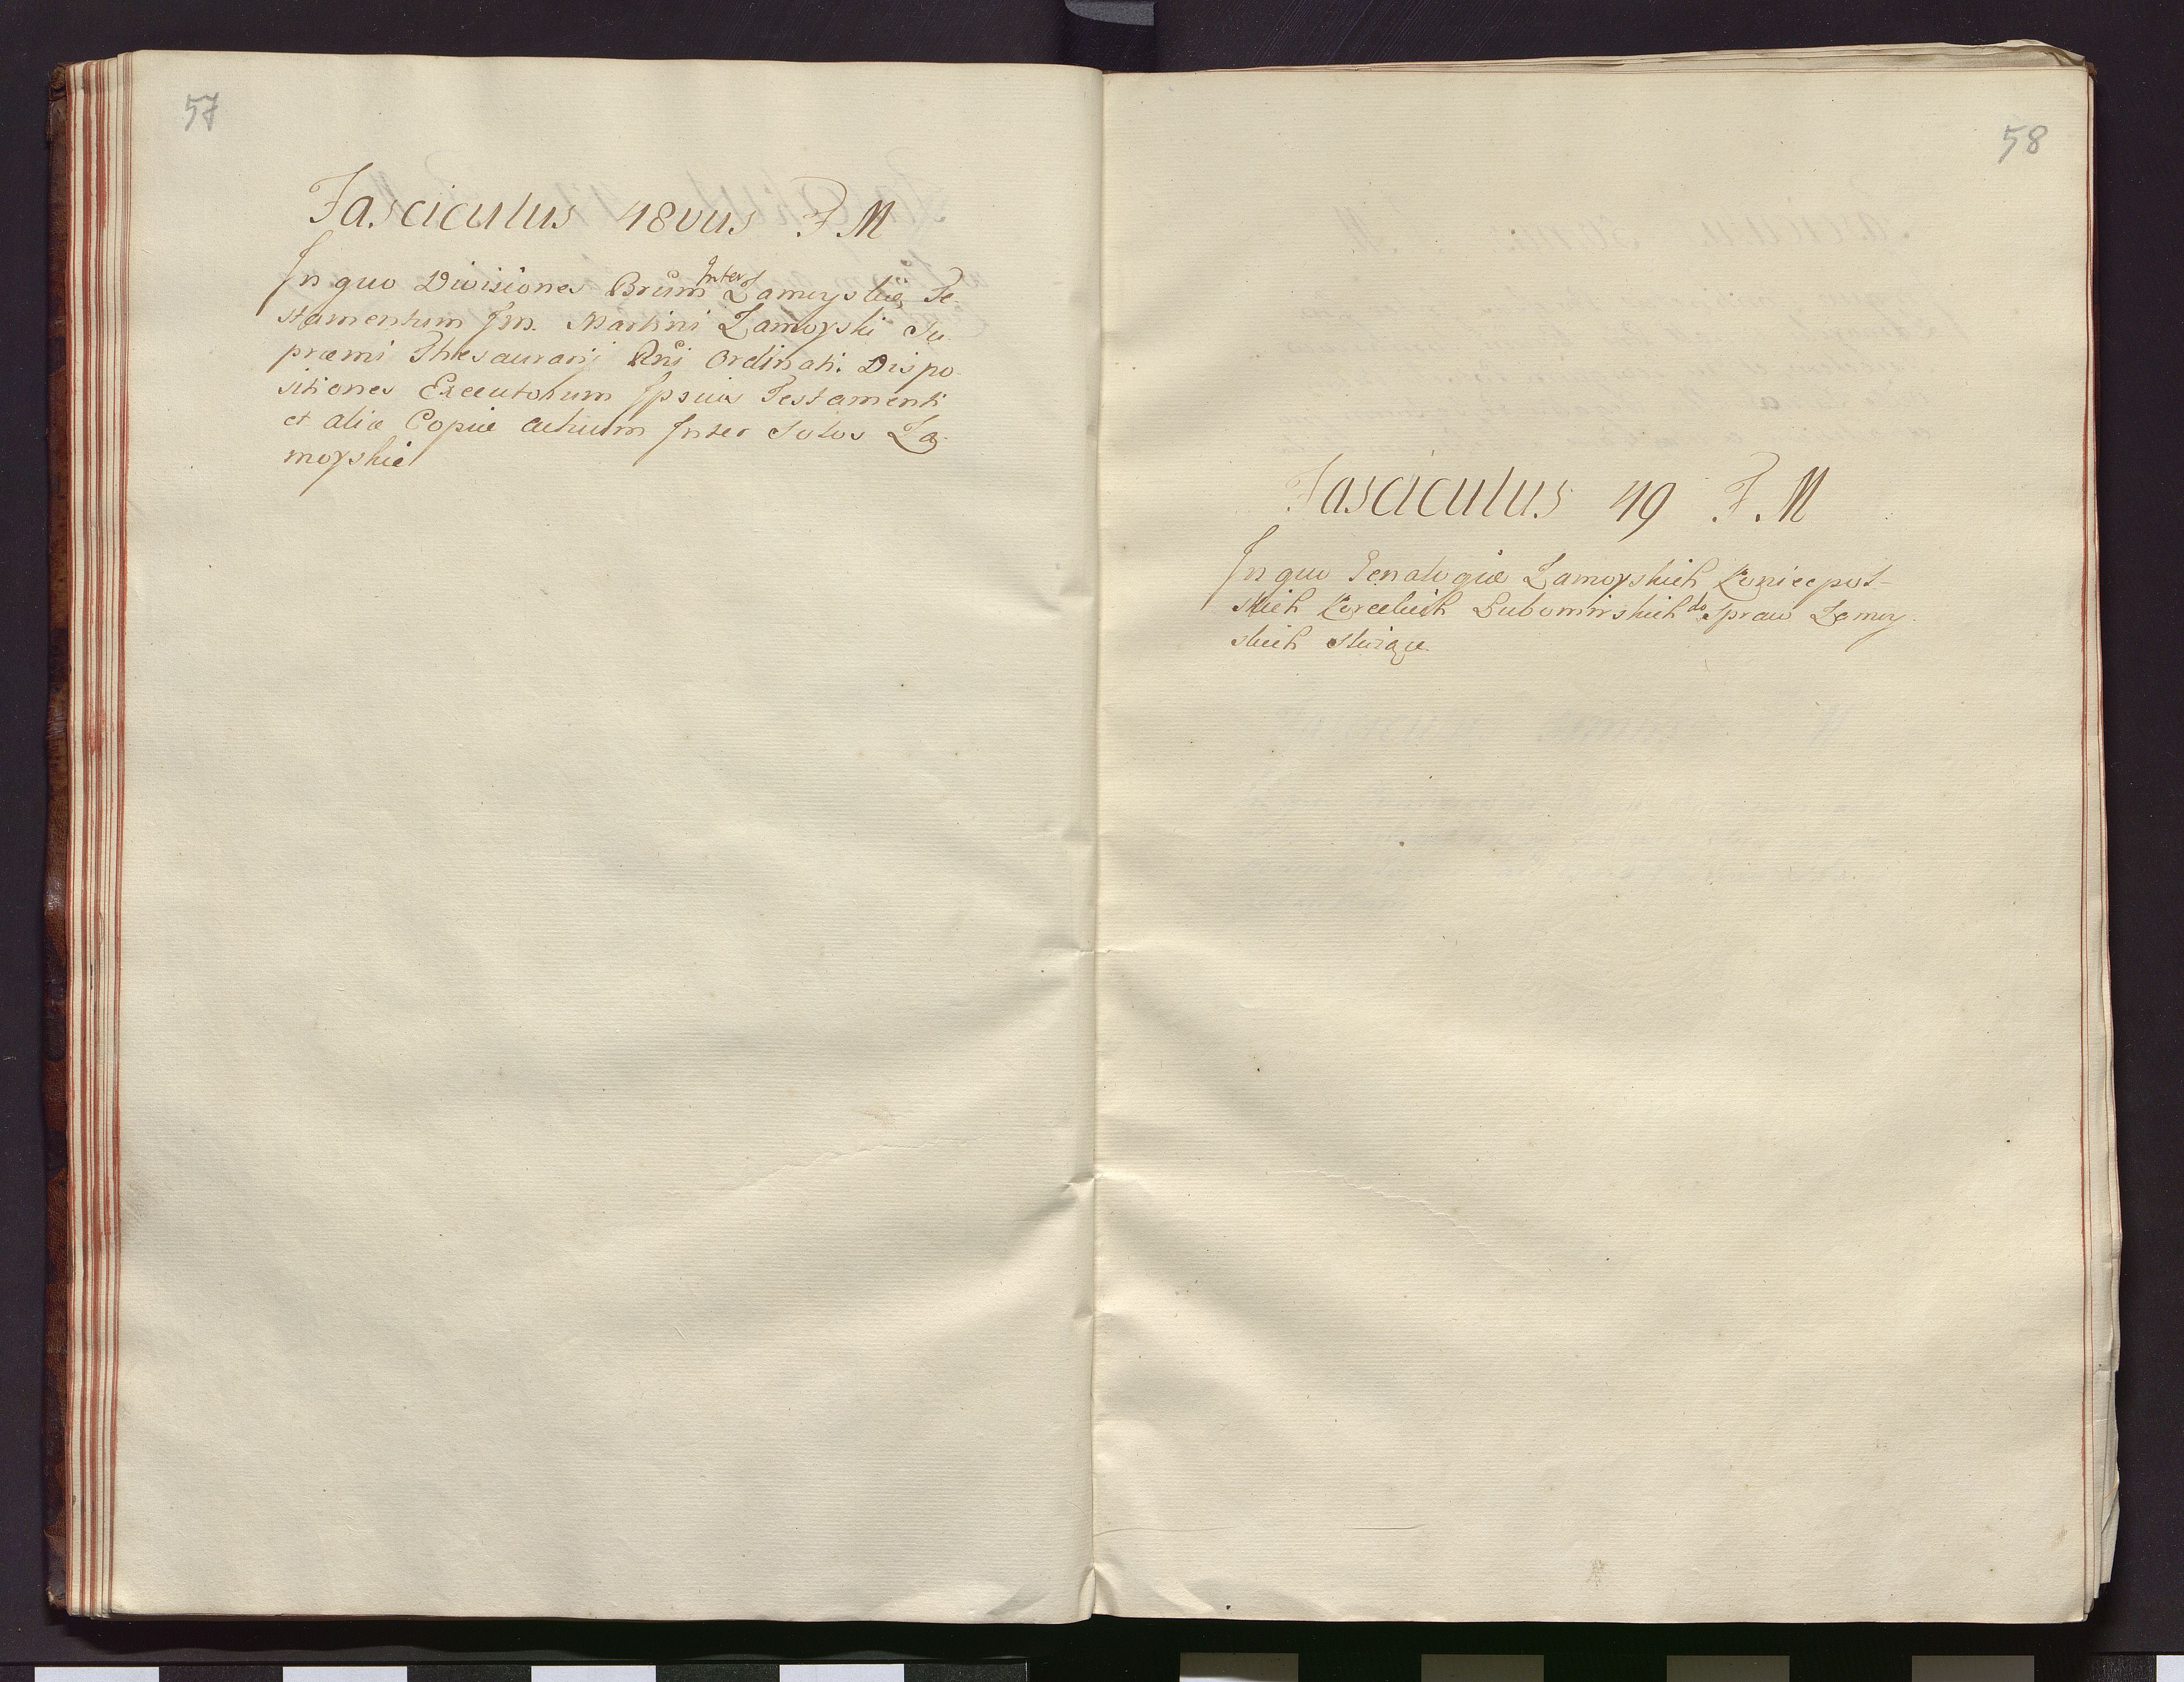 57
Fasciculus 48vus F. M
In quo Divisiones Brum Inter Zamoyskie, Te-
stamentum Jm. Martini Zamoyski Su-
præmi Thesaurarij Rni Ordinati. Dispo-
sitiones Executorum Ipsius Testamenti
et aliæ Copiæ actuum Inter Solos Za-
moyskie
58
Fasciculus 49 F. M
In quo Genalogiæ Zamoyskich Koniecpol-
skich Koreckich Lubomirskich do Spraw Zamoy-
skich służące.